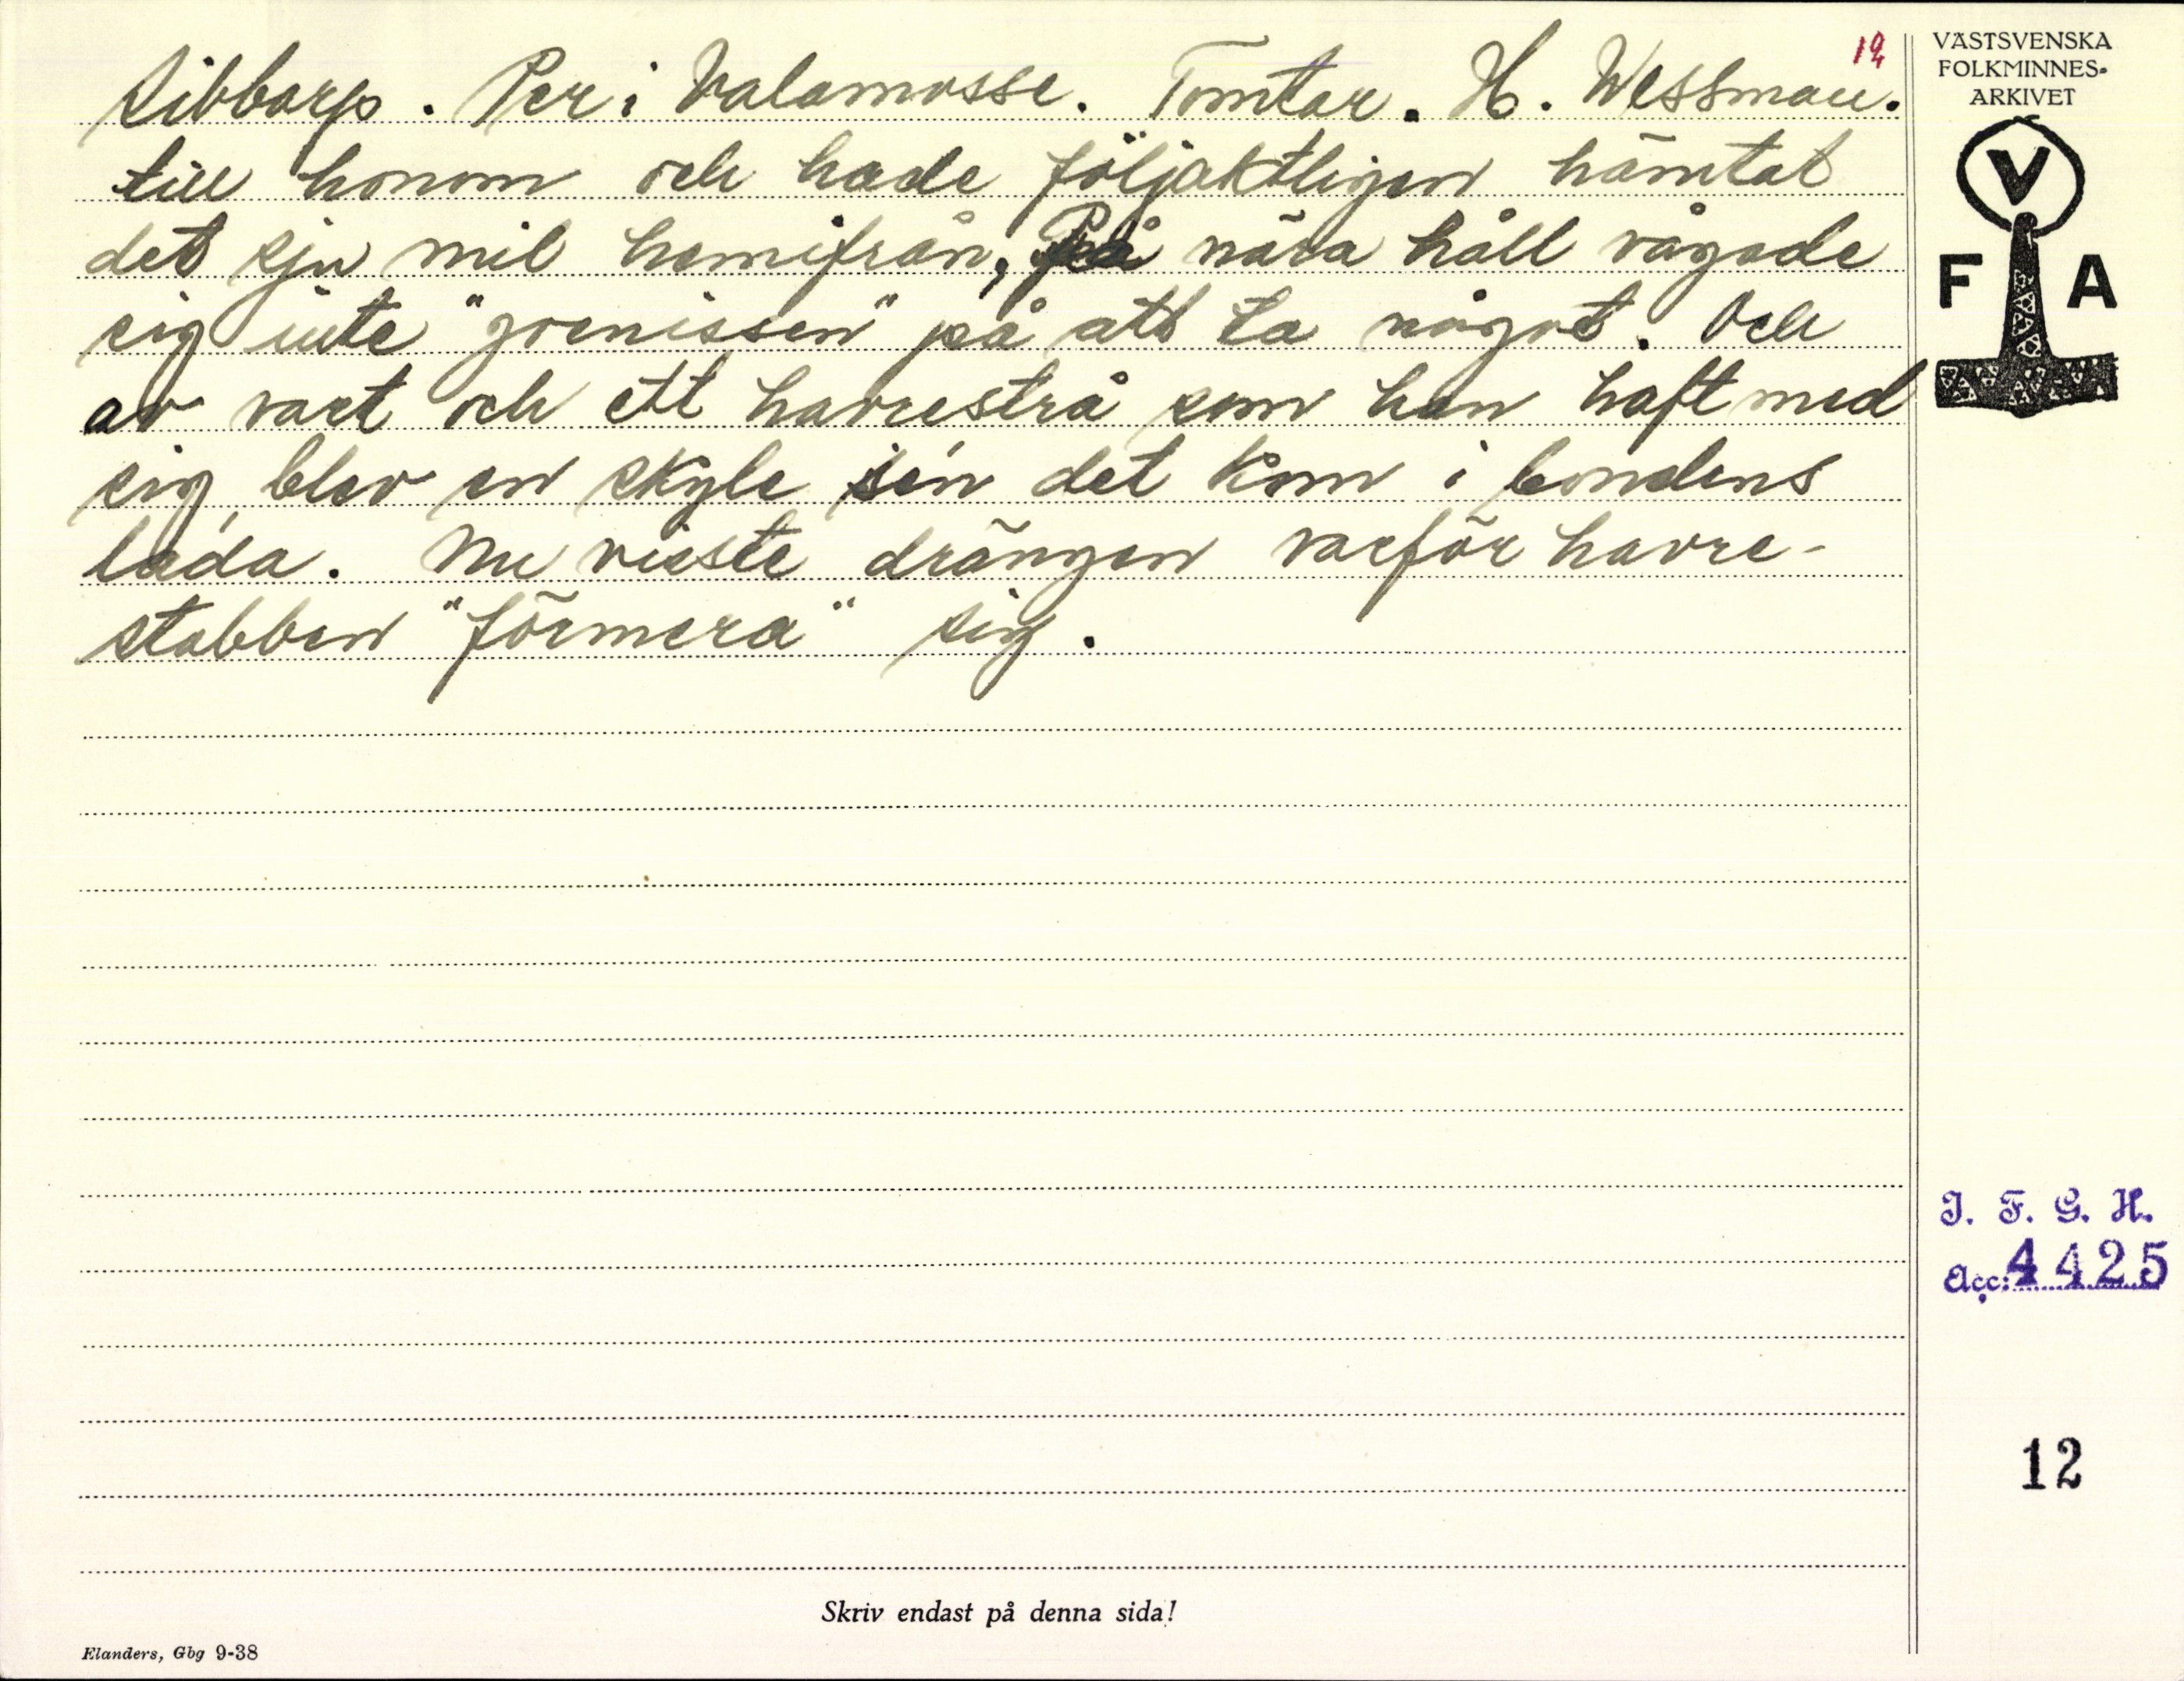 12
Sibbarp. Per i Valamosse. Tomtar. H. Wessman.
till honom och hade följaktligen hämtat
det sju mil hemifrån, På nära håll vågade
sig inte "goenissen" på att ta något. Och
av vart och ett havrestrå som han haft med
sig, blev en skyle se'n det kom i bondens
lada. Nu visste drängen varför havre-
stabben "förmera" sig.
VÄSTSVENSKA
FOLKMINNES-
ARKIVET
V
F A
I. F. G. H.
Acc: 4425
12
Skriv endast på denna sida!
Elanders, Gbg 9-38